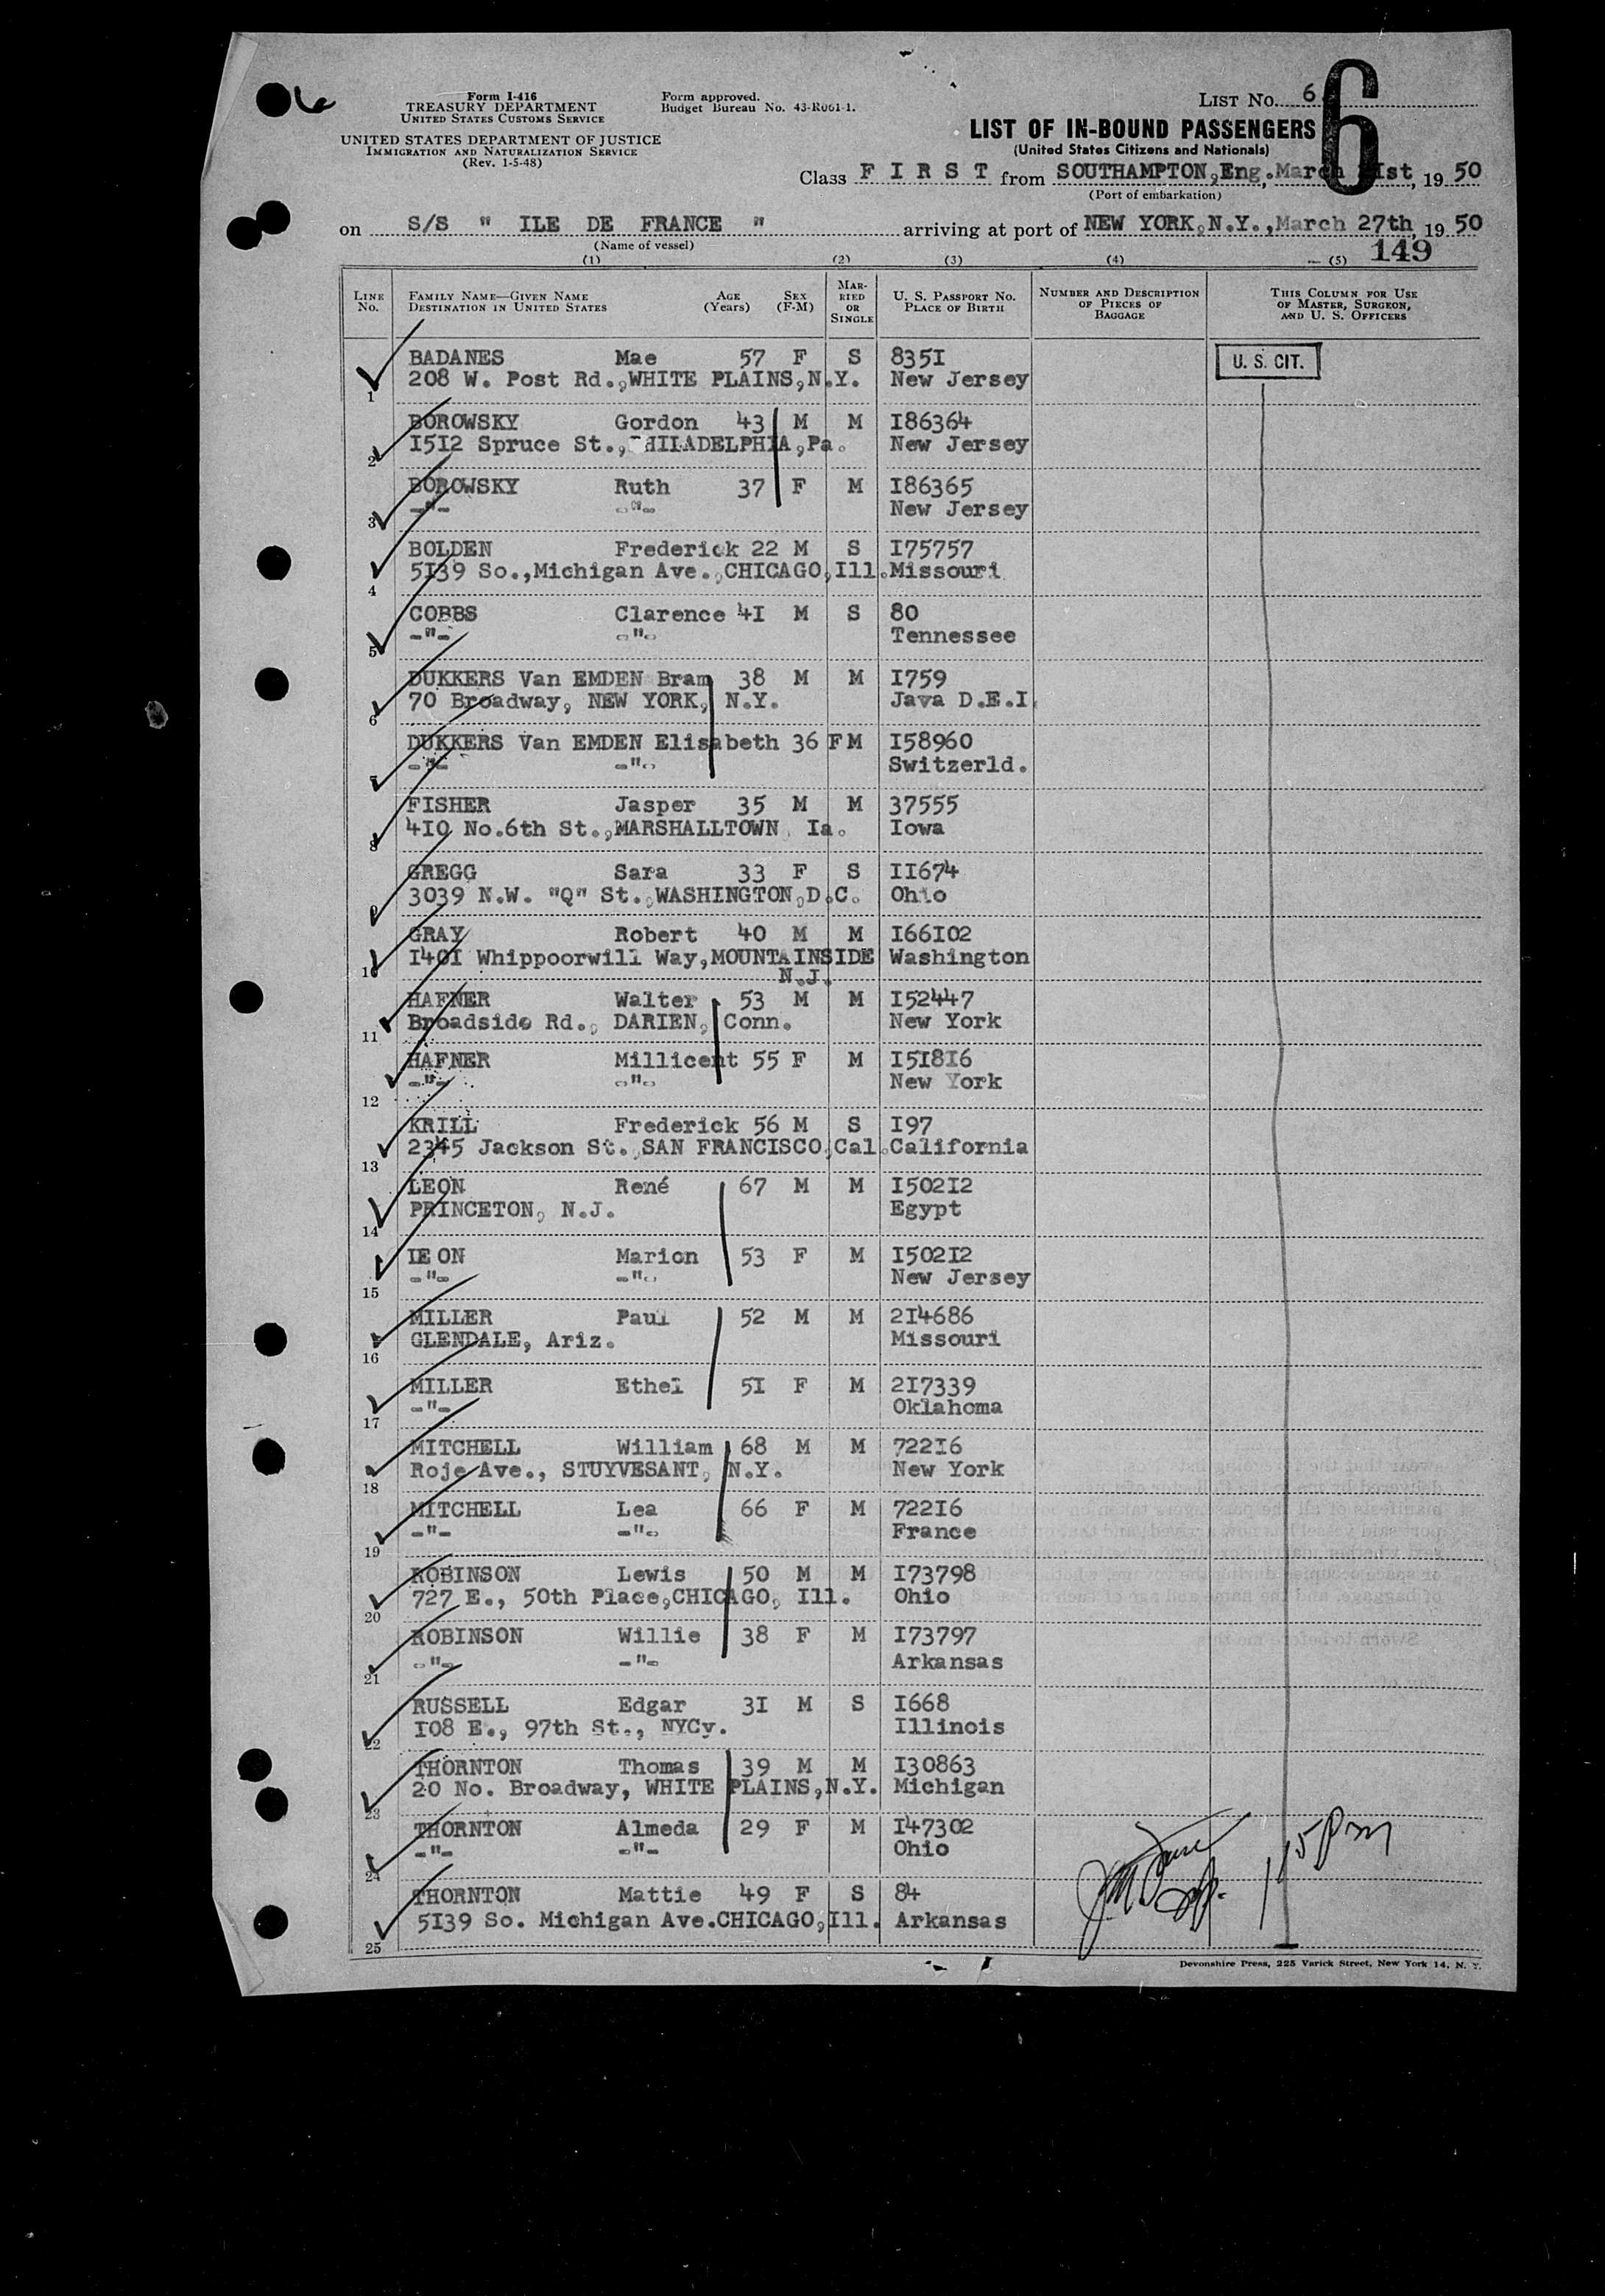 Form I-416
TREASURY DEPARTMENT
UNITED STATES CUSTOMS SERVICE
UNITED STATES DEPARTMENT OF JUSTICE
IMMIGRATION AND NATURALIZATION SERVICE
(Rev. 1-5-48)
Form approved.
Budget Bureau No. 43-R061-1.
LIST No. 6
6
LIST OF IN-BOUND PASSENGERS
(United States Citizens and Nationals)
Class F I R S T from SOUTHAMPTON,Eng., March Ist, 19 50
(Port of embarkation)
on S/S " ILE DE FRANCE " arriving at port of NEW YORK,N.Y., March 27th, 19 50
(Name of vessel)
149
(1) (2) (3) (4) (5)
LINE No. FAMILY NAME—GIVEN NAME DESTINATION IN UNITED STATES AGE (Years) SEX (F-M) MARRIED OR SINGLE U. S. PASSPORT NO. PLACE OF BIRTH NUMBER AND DESCRIPTION OF PIECES OF BAGGAGE THIS COLUMN FOR USE OF MASTER, SURGEON, AND U. S. OFFICERS
BADANES Mae 57 F S 835I U. S. CIT.
1 208 W. Post Rd.,WHITE PLAINS,N.Y. New Jersey
BOROWSKY Gordon 43 M M I86364
2 I5I2 Spruce St., PHILADELPHIA,Pa. New Jersey
BOROWSKY Ruth 37 F M I86365
3 -"- -"- New Jersey
BOLDEN Frederick 22 M S I75757
4 5I39 So.,Michigan Ave.,CHICAGO,Ill. Missouri
COBBS Clarence 4I M S 80
5 -"- -"- Tennessee
DUKKERS Van EMDEN Bram 38 M M I759
6 70 Broadway, NEW YORK, N.Y. Java D.E.I.
DUKKERS Van EMDEN Elisabeth 36 F M I58960
7 -"- -"- Switzerld.
FISHER Jasper 35 M M 37555
8 4I0 No.6th St.,MARSHALLTOWN, Ia. Iowa
GREGG Sara 33 F S II674
9 3039 N.W. "Q" St.,WASHINGTON,D.C. Ohio
GRAY Robert 40 M M I66I02
10 I40I Whippoorwill Way,MOUNTAINSIDE Washington
N.J.
HAFNER Walter 53 M M I52447
11 Broadside Rd., DARIEN, Conn. New York
HAFNER Millicent 55 F M I5I8I6
12 -"- -"- New York
KRILL Frederick 56 M S I97
13 2345 Jackson St.,SAN FRANCISCO,Cal. California
LEON René 67 M M I502I2
14 PRINCETON, N.J. Egypt
LEON Marion 53 F M I502I2
15 -"- -"- New Jersey
MILLER Paul 52 M M 2I4686
16 GLENDALE, Ariz. Missouri
MILLER Ethel 5I F M 2I7339
17 -"- Oklahoma
MITCHELL William 68 M M 722I6
18 Roje Ave., STUYVESANT, N.Y. New York
MITCHELL Lea 66 F M 722I6
19 -"- -"- France
ROBINSON Lewis 50 M M I73798
20 727 E., 50th Place,CHICAGO, Ill. Ohio
ROBINSON Willie 38 F M I73797
21 -"- -"- Arkansas
RUSSELL Edgar 3I M S I668
22 I08 E., 97th St., NYCy. Illinois
THORNTON Thomas 39 M M I30863
23 20 No. Broadway, WHITE PLAINS,N.Y. Michigan
THORNTON Almeda 29 F M I47302
24 -"- -"- Ohio
THORNTON Mattie 49 F S 84
25 5I39 So. Michigan Ave.CHICAGO,Ill. Arkansas
Devonshire Press, 225 Varick Street, New York 14, N. Y.